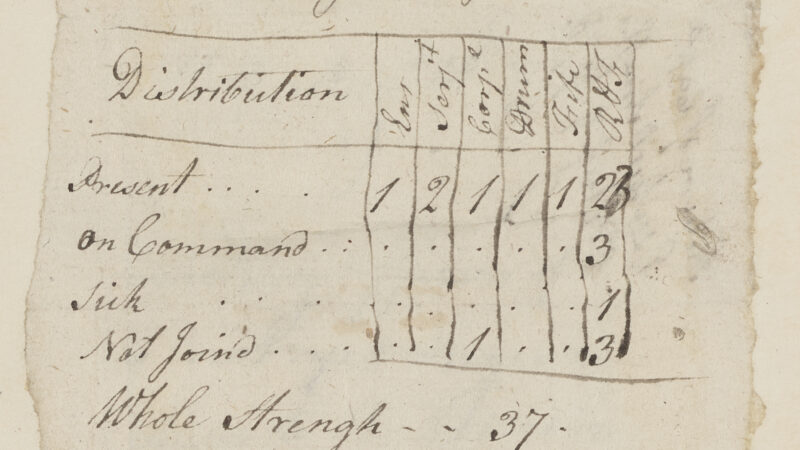 Distribution Ens Serjt Corpl Drum Fife R&F
Present .... 1 2 1 1 1 23
On Command .. . . . . . 3
Sick ... . . . . . 1
Not Joind .... . . 1 . . 3
Whole Strengh - - 37.